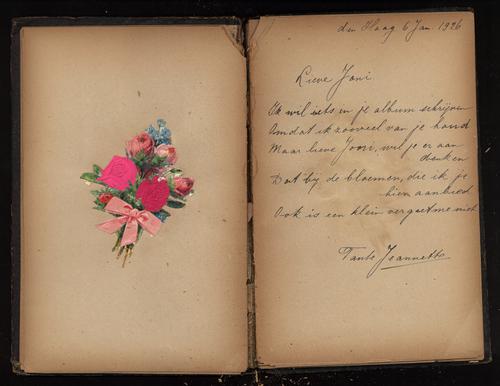 den Haag 6 Jan. 1926
Lieve Joni.
Ik wil iets in je album schrijven
Omdat ik zooveel van je houd
Maar lieve Joni, wil je er aan
denken
Dat bij de bloemen, die ik je
hier aanbied
Ook is een klein vergeetmeniet
Tante Jeannette